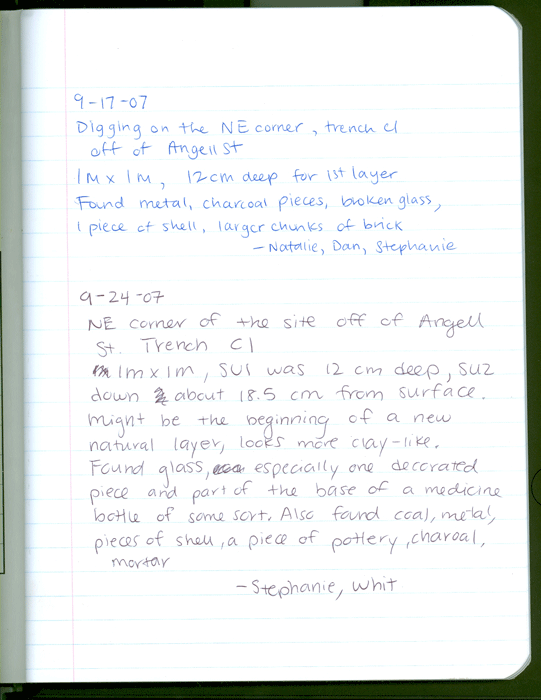 9-17-07
Digging on the NE corner, trench C1
off of Angell St
1m x 1m, 12cm deep for 1st layer
Found metal, charcoal pieces, broken glass,
1 piece of shell, larger chunks of brick
- Natalie, Dan, Stephanie
9-24-07
NE corner of the site off of Angell
St. Trench C1
1m x 1m, SU1 was 12 cm deep, SU2
down about 18.5 cm from surface.
Might be the beginning of a new
natural layer, looks more clay-like.
Found glass, especially one decorated
piece and part of the base of a medicine
bottle of some sort. Also found coal, metal,
pieces of shell, a piece of pottery, charoal,
mortar
- Stephanie, Whit